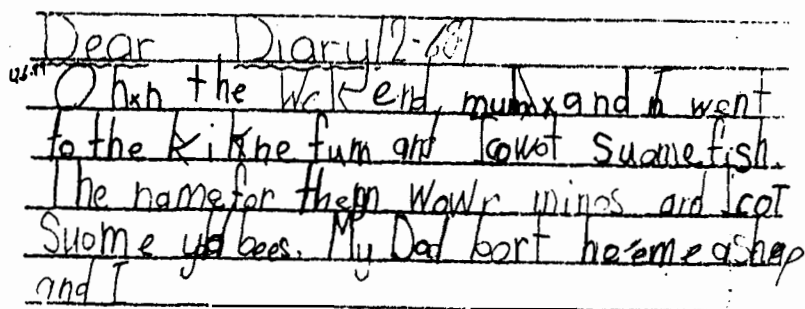 Dear Diary 12-6-89
On the Wekend mum and I went
to the kikne fum and I cowot Suome fish.
The name for them Wowr minos and I cot
Suome yabees. My Dad bort home a shep
and I